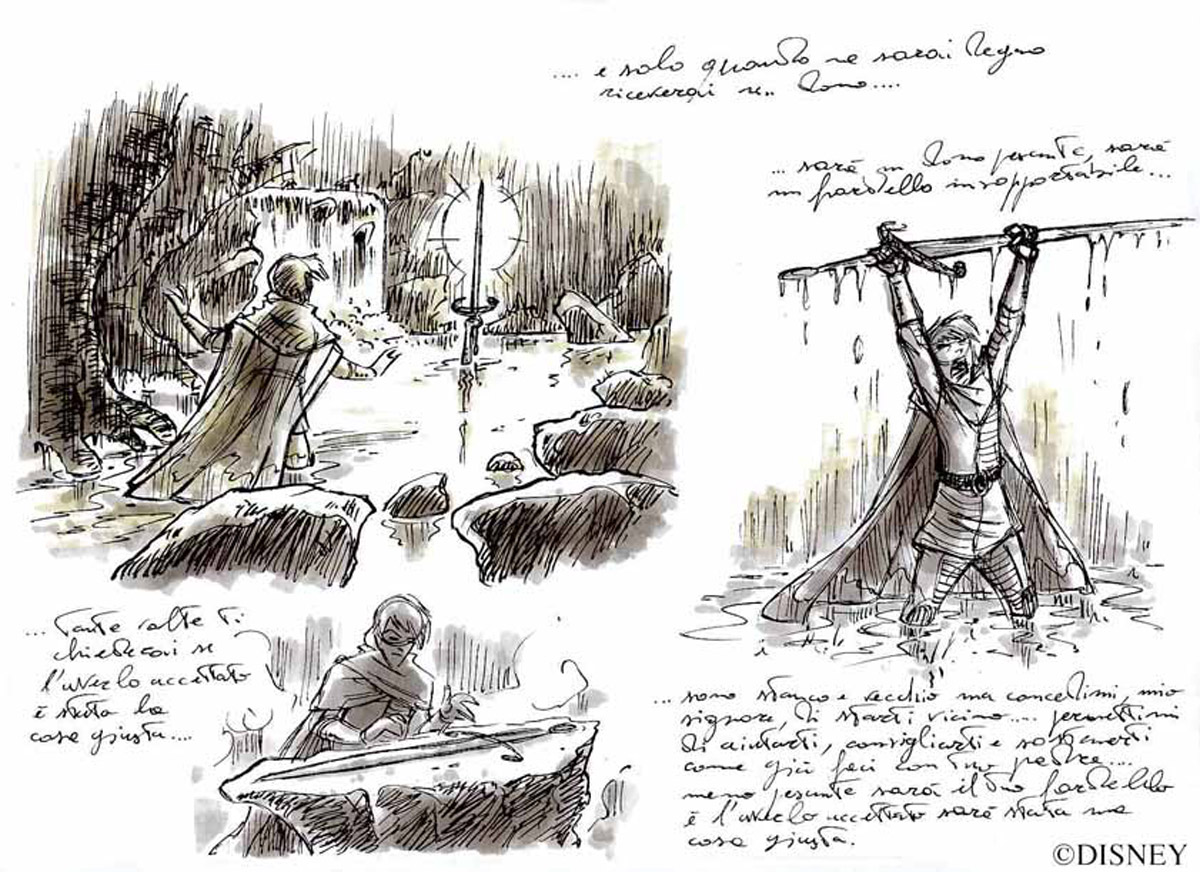 .... e solo quando ne sarai degno
riceverai il dono....
... sarà un dono pesante, sarà
un fardello insopportabile...
... tante volte ti
chiederai se
l'averlo accettato
è stata la
cosa giusta....
... sono stanco e vecchio ma concedimi, mio
signore, di starti vicino.... permettimi
di aiutarti, consigliarti e sostenerti
come già feci con tuo padre...
meno pesante sarà il tuo fardello
e l'averlo accettato sarà stata una
cosa giusta.
©DISNEY